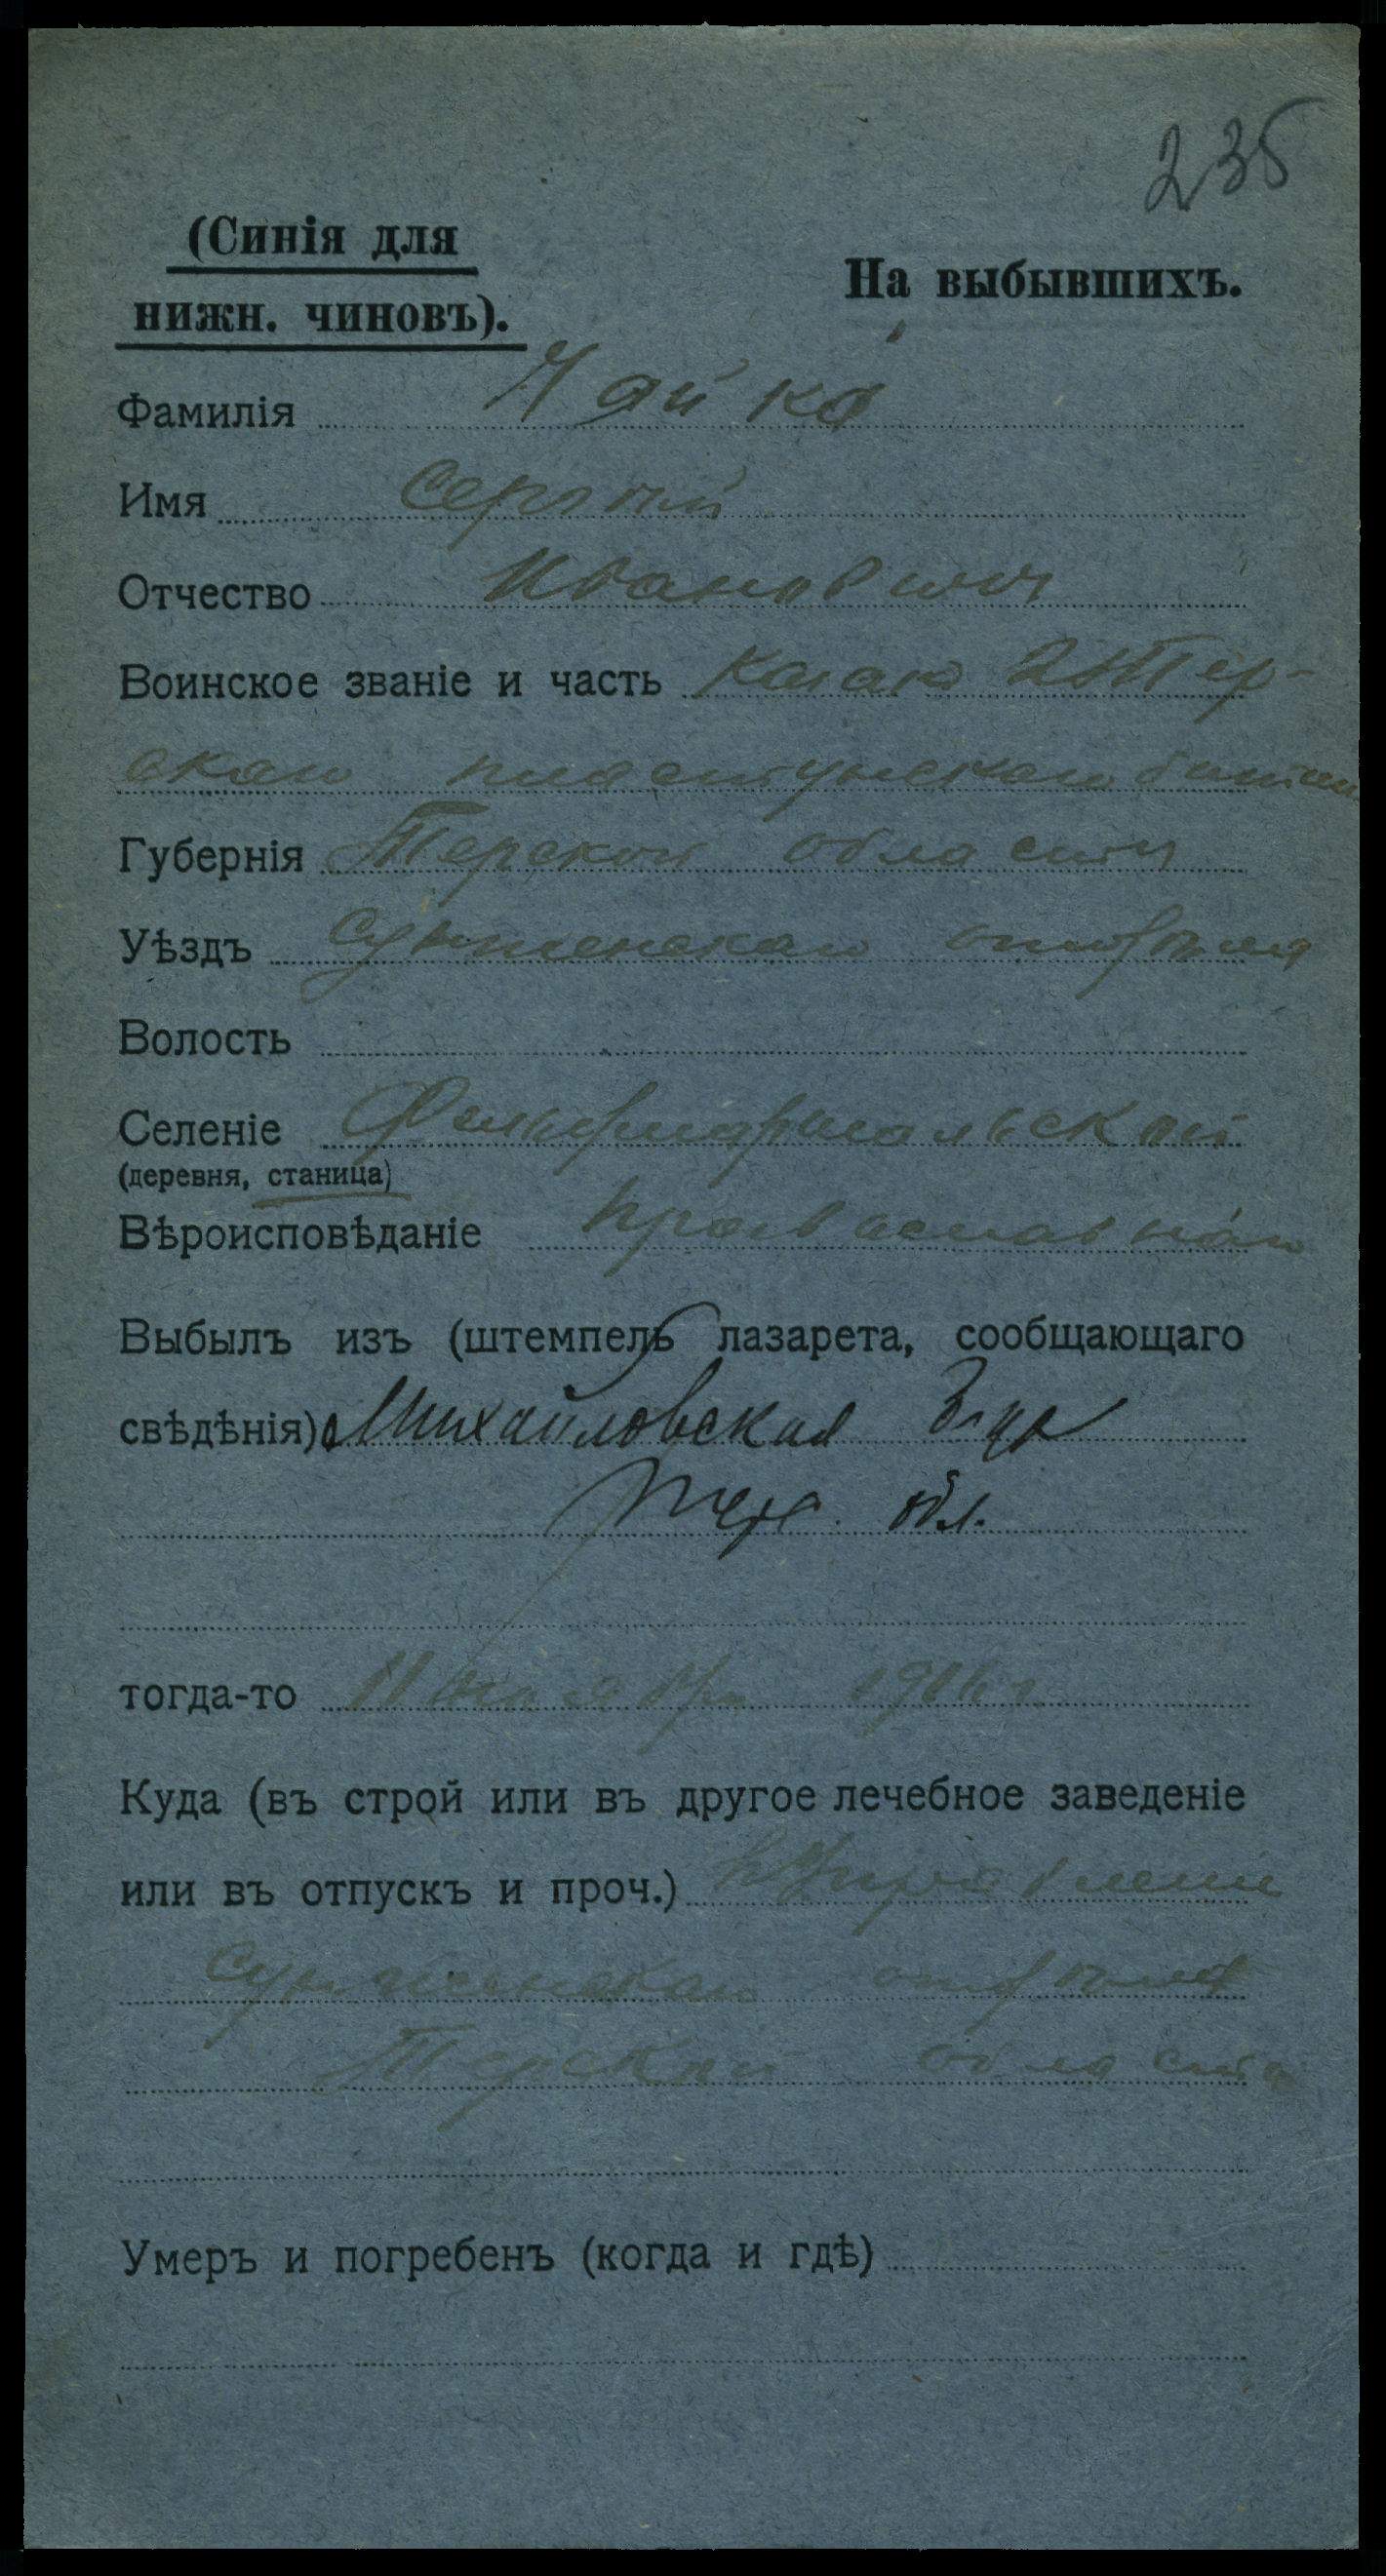 235
(Синія для
нижн. чиновъ).
На выбывшихъ.
Фамилія Чайка
Имя Сергѣй
Отчество Ивановичъ
Воинское званіе и часть Казакъ 2 Тер-
скаго пластунскаго батал
Губернія Терской области
Уѣздъ Сунженскаго отдѣла
Волость
Селеніе Фельдмаршальской
(деревня, станица)
Вѣроисповѣданіе православнаго
Выбылъ изъ (штемпель лазарета, сообщающаго
свѣдѣнія) Михайловская
Терс. обл.
тогда-то 11 1916 г.
Куда (въ строй или въ другое лечебное заведеніе
или въ отпускъ и проч.) Управленіе
Сунженскаго отдѣла
Терской области
Умеръ и погребенъ (когда и гдѣ)